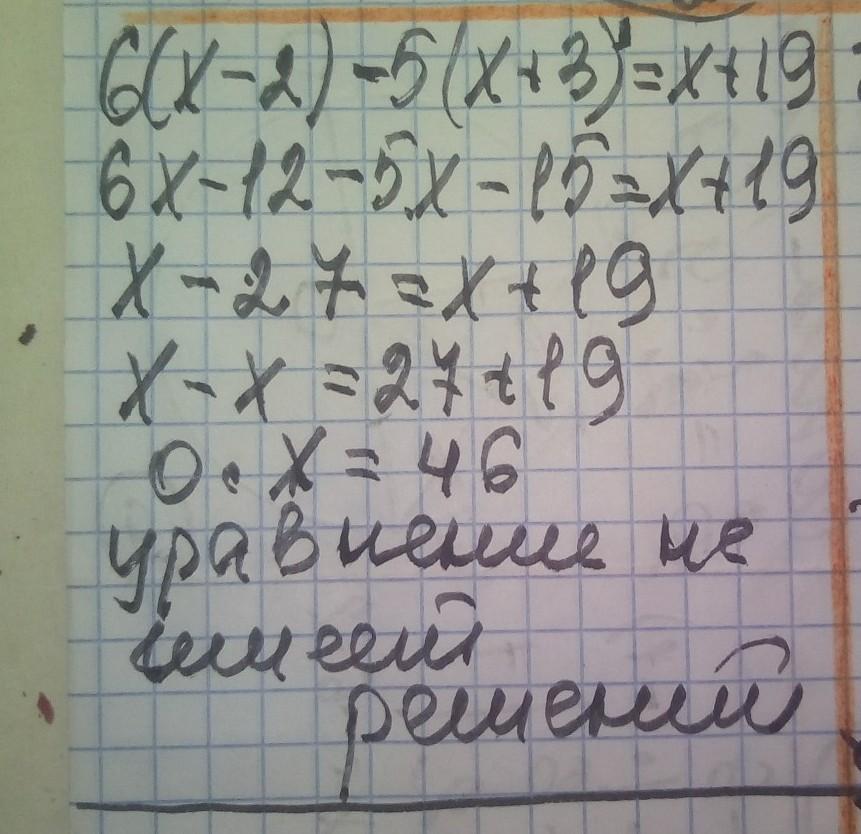 6(x-2)-5(x+3)=x+19
6x-12-5x-15=x+19
x-27=x+19
x-x=27+19
0·x=46
уравнение не
имеет
решений